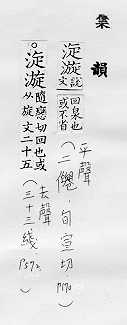 集韻
淀漩說文回泉也或不省
（二僊，旬宣切 P170）
平聲
○淀漩隨戀切回也或从旋文二十五
（三十三綫 P572）
去聲